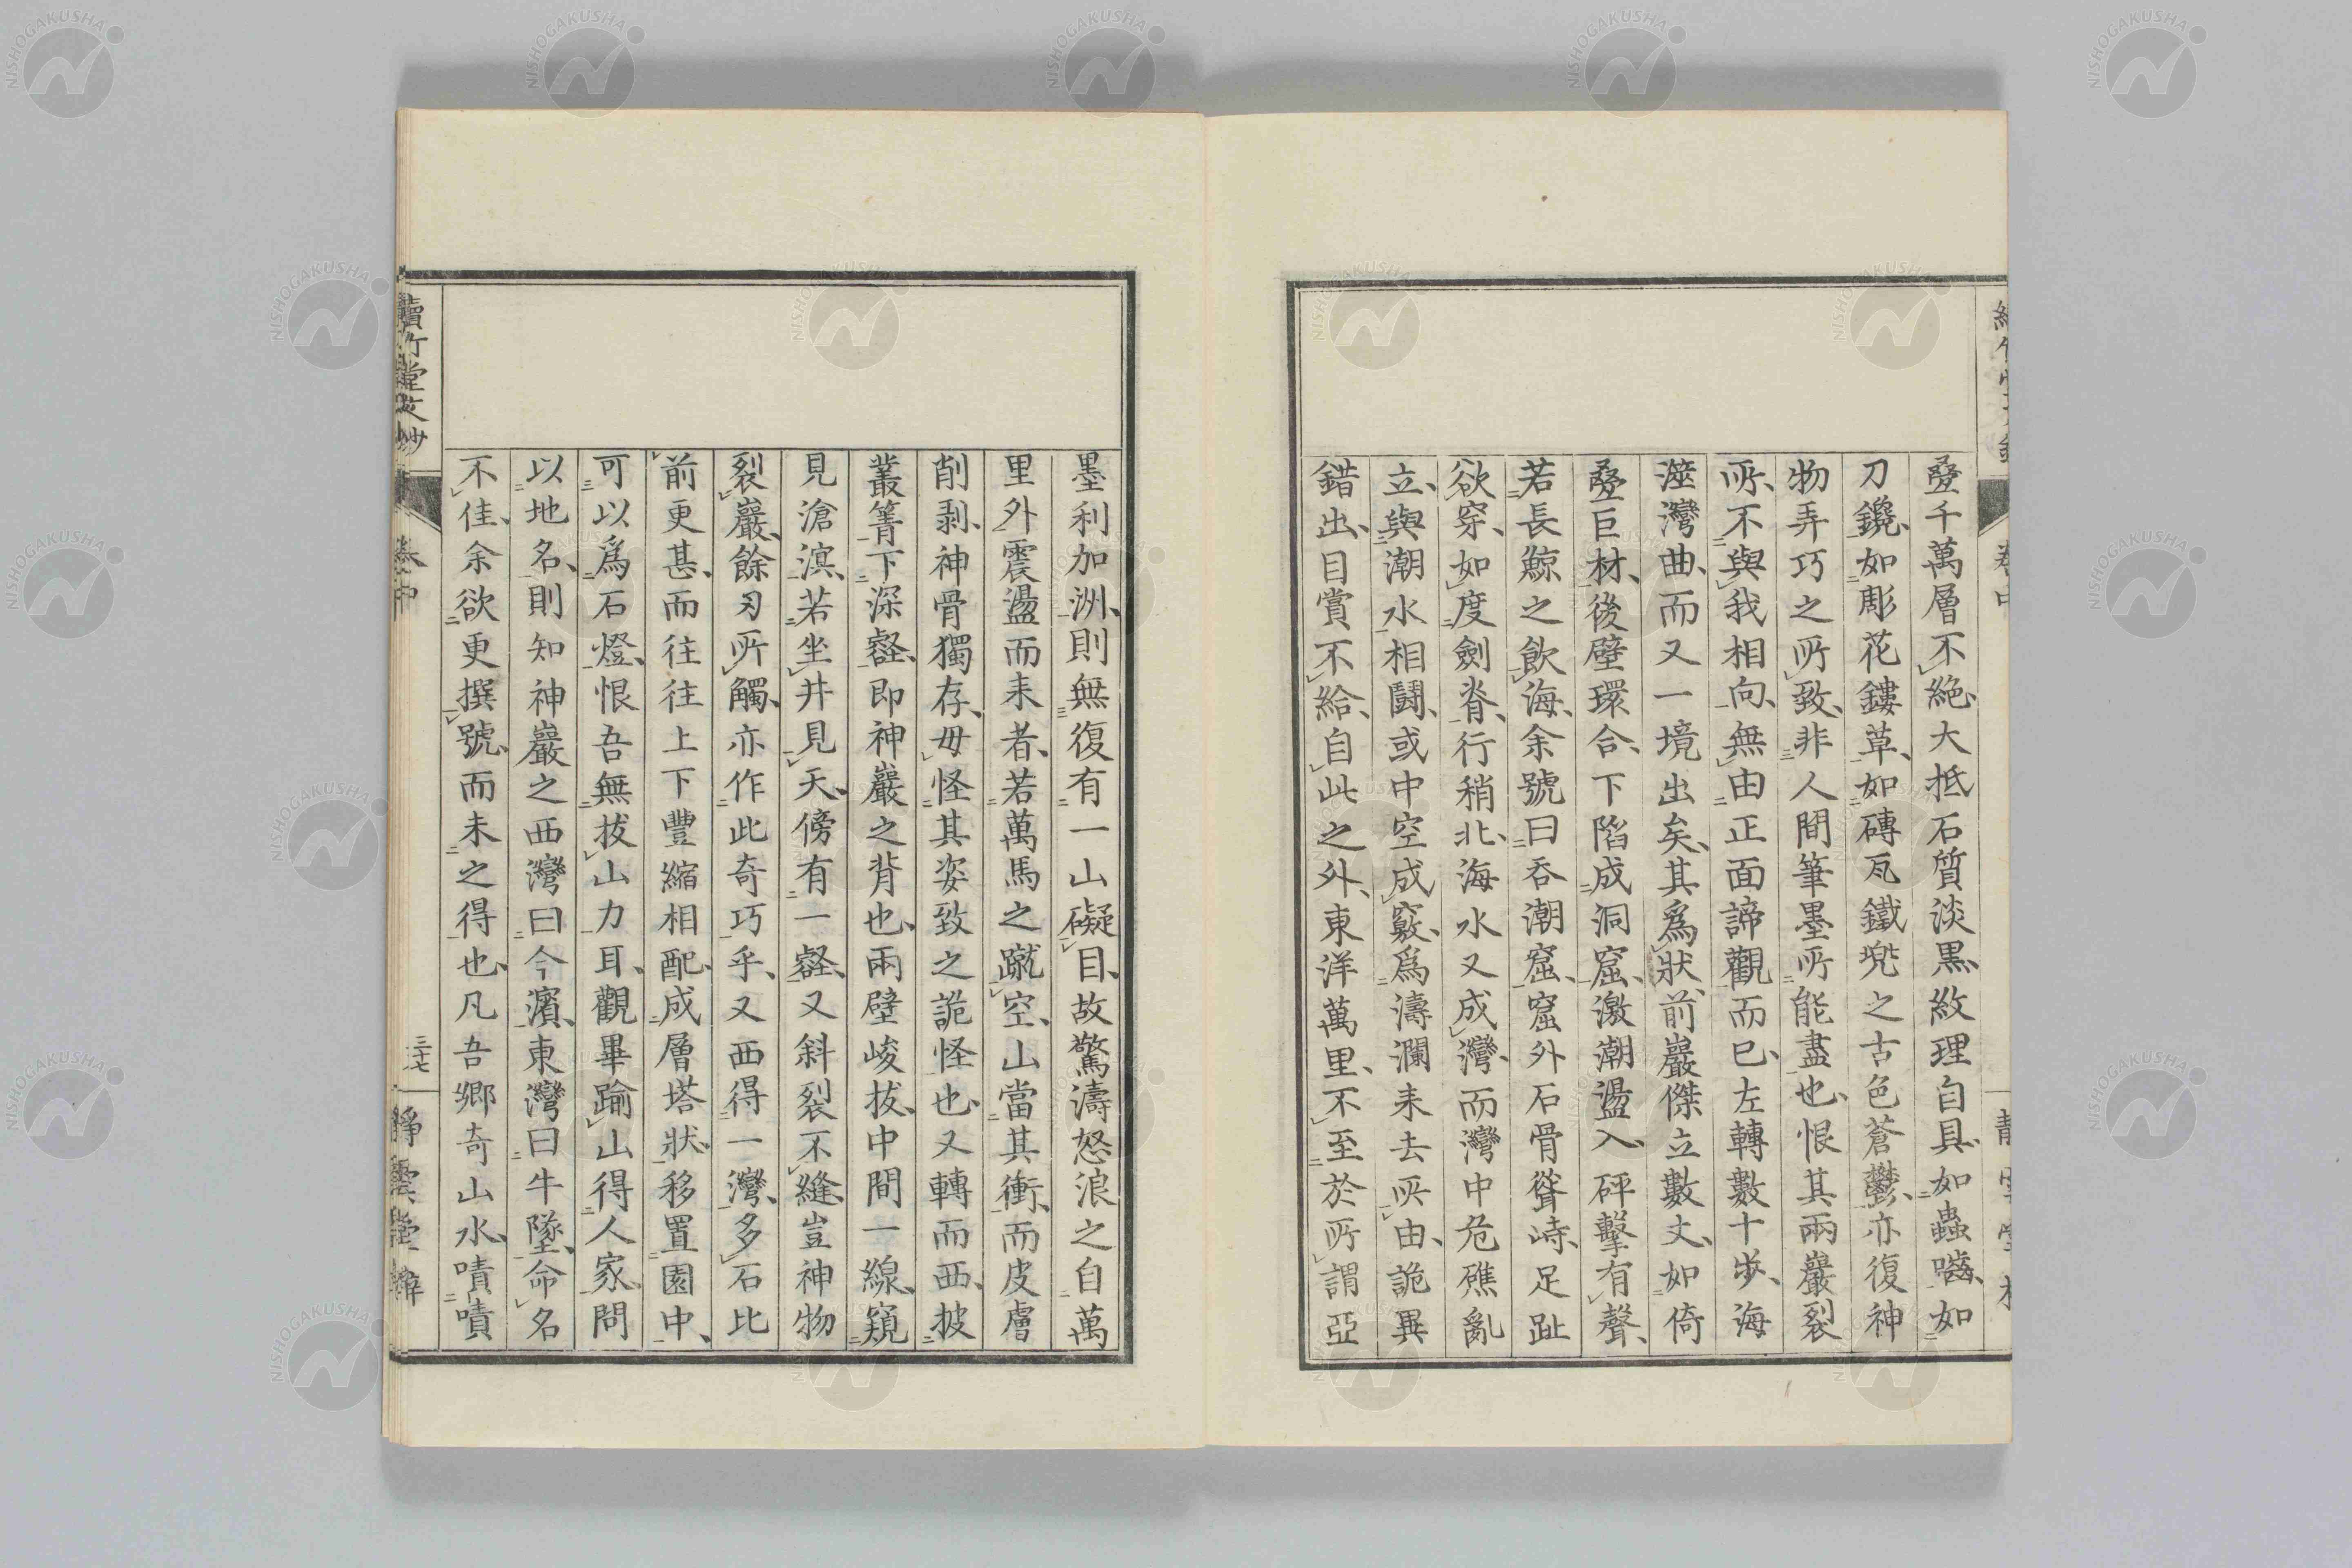 疊千萬層不絶大抵石質淡黒紋理自具如蟲嚙如
刀鑱如彫花鏤草如磚瓦鐵兠之古色蒼鬱亦復神
物弄巧之所致非人間筆墨所能盡也恨其兩巖裂
所不與我相向無由正面諦觀而已左轉數十步海
灣曲而又一境出矣其爲狀前巖傑立數丈如倚
疊巨材後壁環合下陷成洞窟激潮盪入砰擊有聲
若長鯨之飲海余號曰呑潮窟窟外石骨聳峙足趾
欲穿如度劍脊行稍北海水又成灣而灣中危礁亂
立與潮水相鬪或中空成竅爲濤瀾来去所由詭異
錯出目賞不給自此之外東洋萬里不至於所謂亞
墨利加洲則無復有一山礙目故驚濤怒浪之自萬
里外震盪而来者若萬馬之蹴空山當其衝而皮膚
削剥神骨獨存毋怪其姿致之詭怪也又轉而西披
叢箐下深壑即神巖之背也兩壁峻拔中間一線窺
見滄溟若坐井見天傍有一壑又斜裂不縫豈神物
裂巖餘刃所觸亦作此奇巧乎又西得一灣多石比
前更甚而往往上下豐縮相配成層塔狀移置園中
可以爲石燈恨吾無拔山力耳觀畢踰山得人家問
以地名則知神巖之西灣曰今濱東灣曰牛墜命名
不佳余欲更撰號而未之得也凡吾郷奇山水嘖嘖
續竹堂文鈔
卷中
三十七
靜雲堂梓
NISHOGAKUSHA